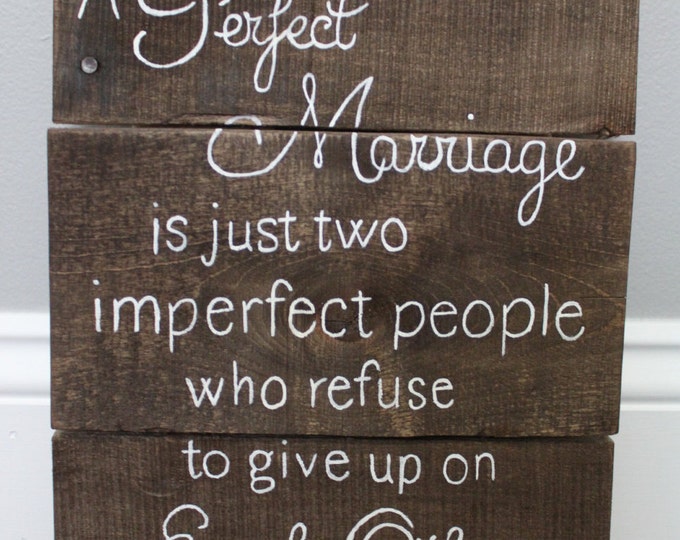 A Perfect
Marriage
is just two
imperfect people
who refuse
to give up on